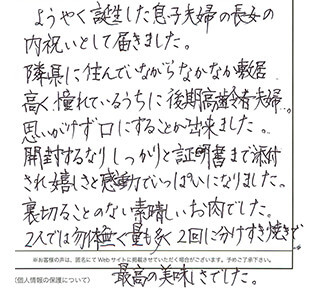 ようやく誕生した息子夫婦の長女の
内祝いとして届きました。
隣県に住んでいながらなかなか敷居
高く憧れているうちに後期高齢者夫婦。
思いがけず口にすることが出来ました。
開封するなりしっかりと証明書まで添付
され嬉しさと感動でいっぱいになりました。
裏切ることのない素晴しいお肉でした。
2人では勿体無く量も多く2回に分けすき焼きで。
※お客様の声は、匿名にてWebサイトに掲載させていただく場合がございます。予めご了承下さい。
(個人情報の保護について)
最高の美味しさでした。